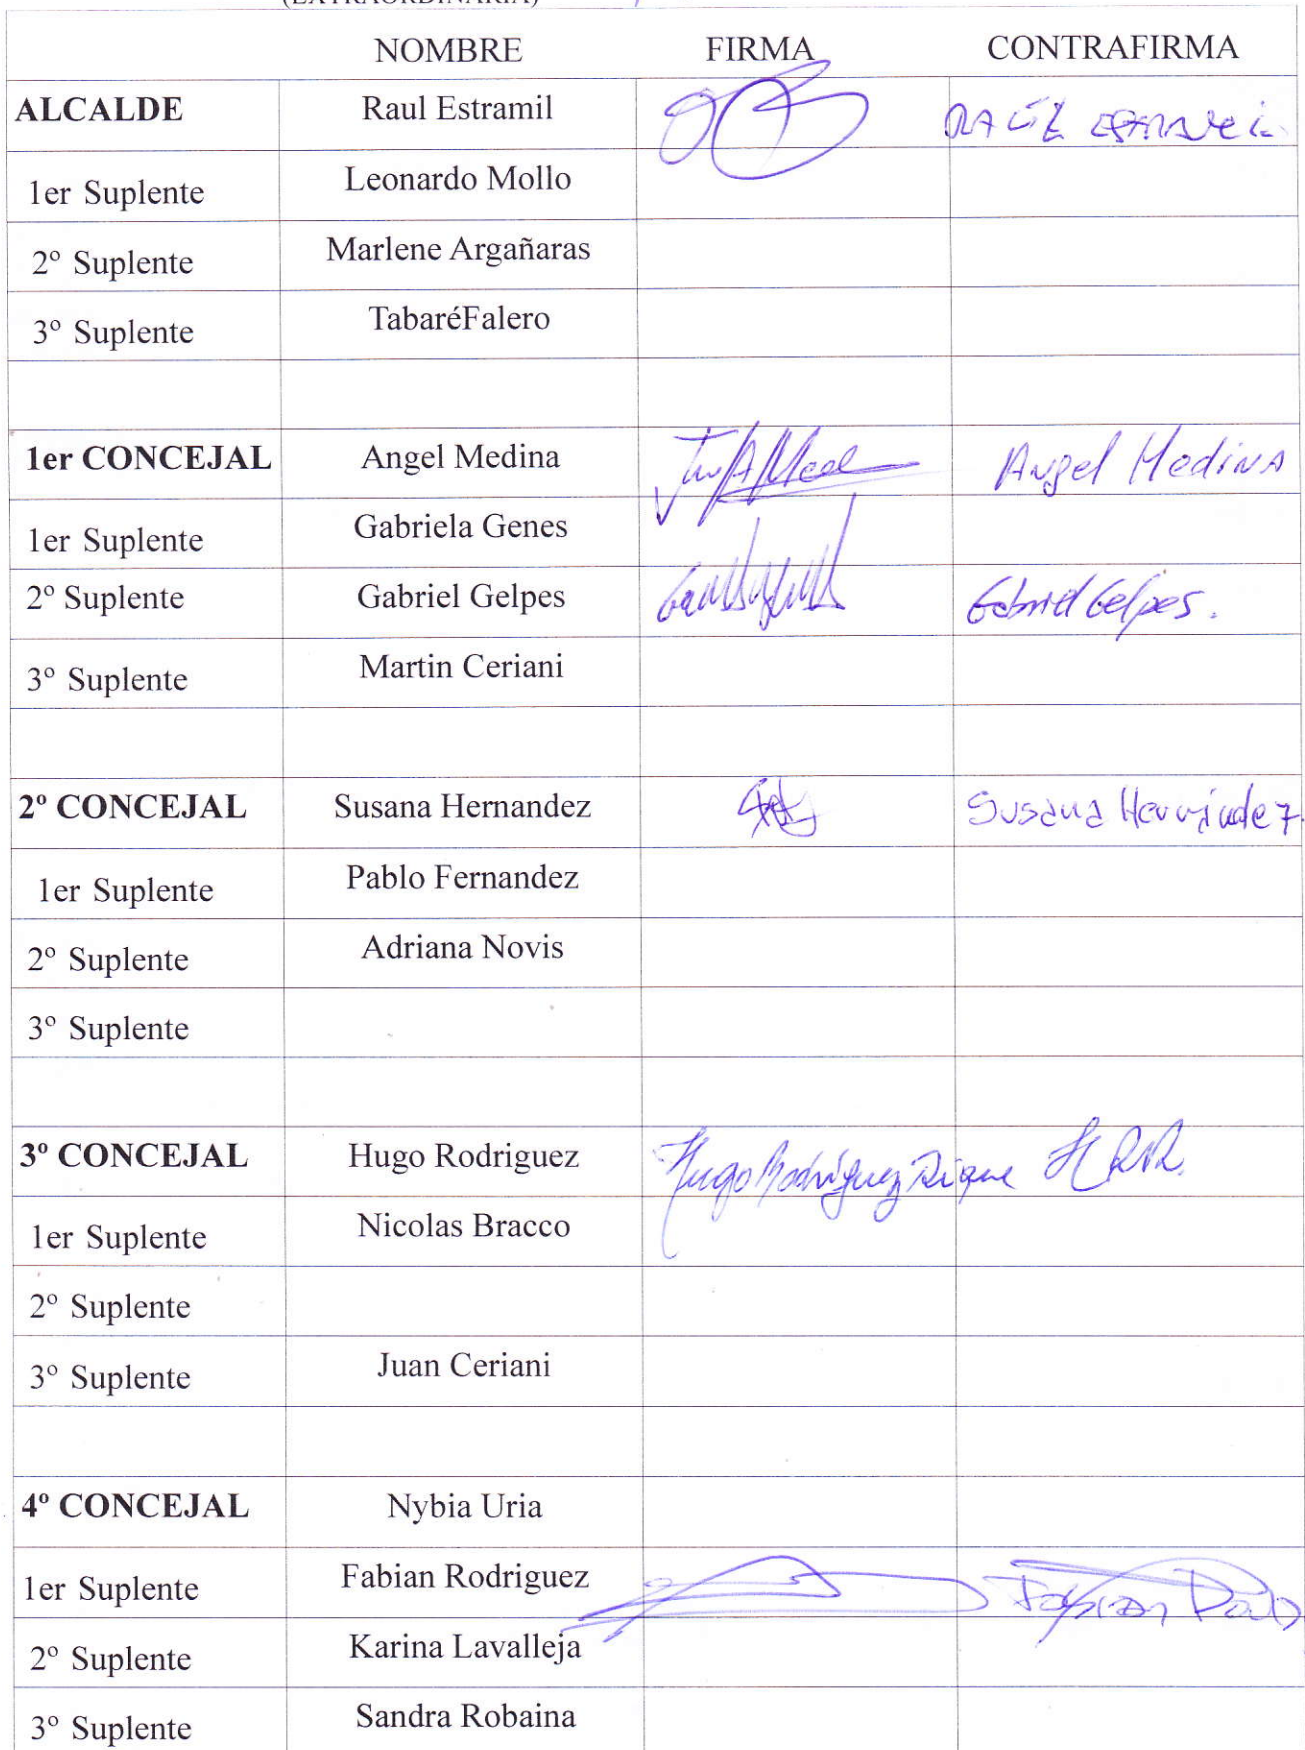 (EXTRAORDINARIA)
NOMBRE FIRMA CONTRAFIRMA
ALCALDE Raul Estramil
1er Suplente Leonardo Mollo
2º Suplente Marlene Argañaras
3º Suplente TabaréFalero
1er CONCEJAL Angel Medina Angel Medina
1er Suplente Gabriela Genes
2º Suplente Gabriel Gelpes Gabriel Gelpes.
3º Suplente Martin Ceriani
2º CONCEJAL Susana Hernandez Susana Hernández.
1er Suplente Pablo Fernandez
2º Suplente Adriana Novis
3º Suplente
3º CONCEJAL Hugo Rodriguez Hugo Rodríguez
1er Suplente Nicolas Bracco
2º Suplente
3º Suplente Juan Ceriani
4º CONCEJAL Nybia Uria
1er Suplente Fabian Rodriguez Fabian
2º Suplente Karina Lavalleja
3º Suplente Sandra Robaina